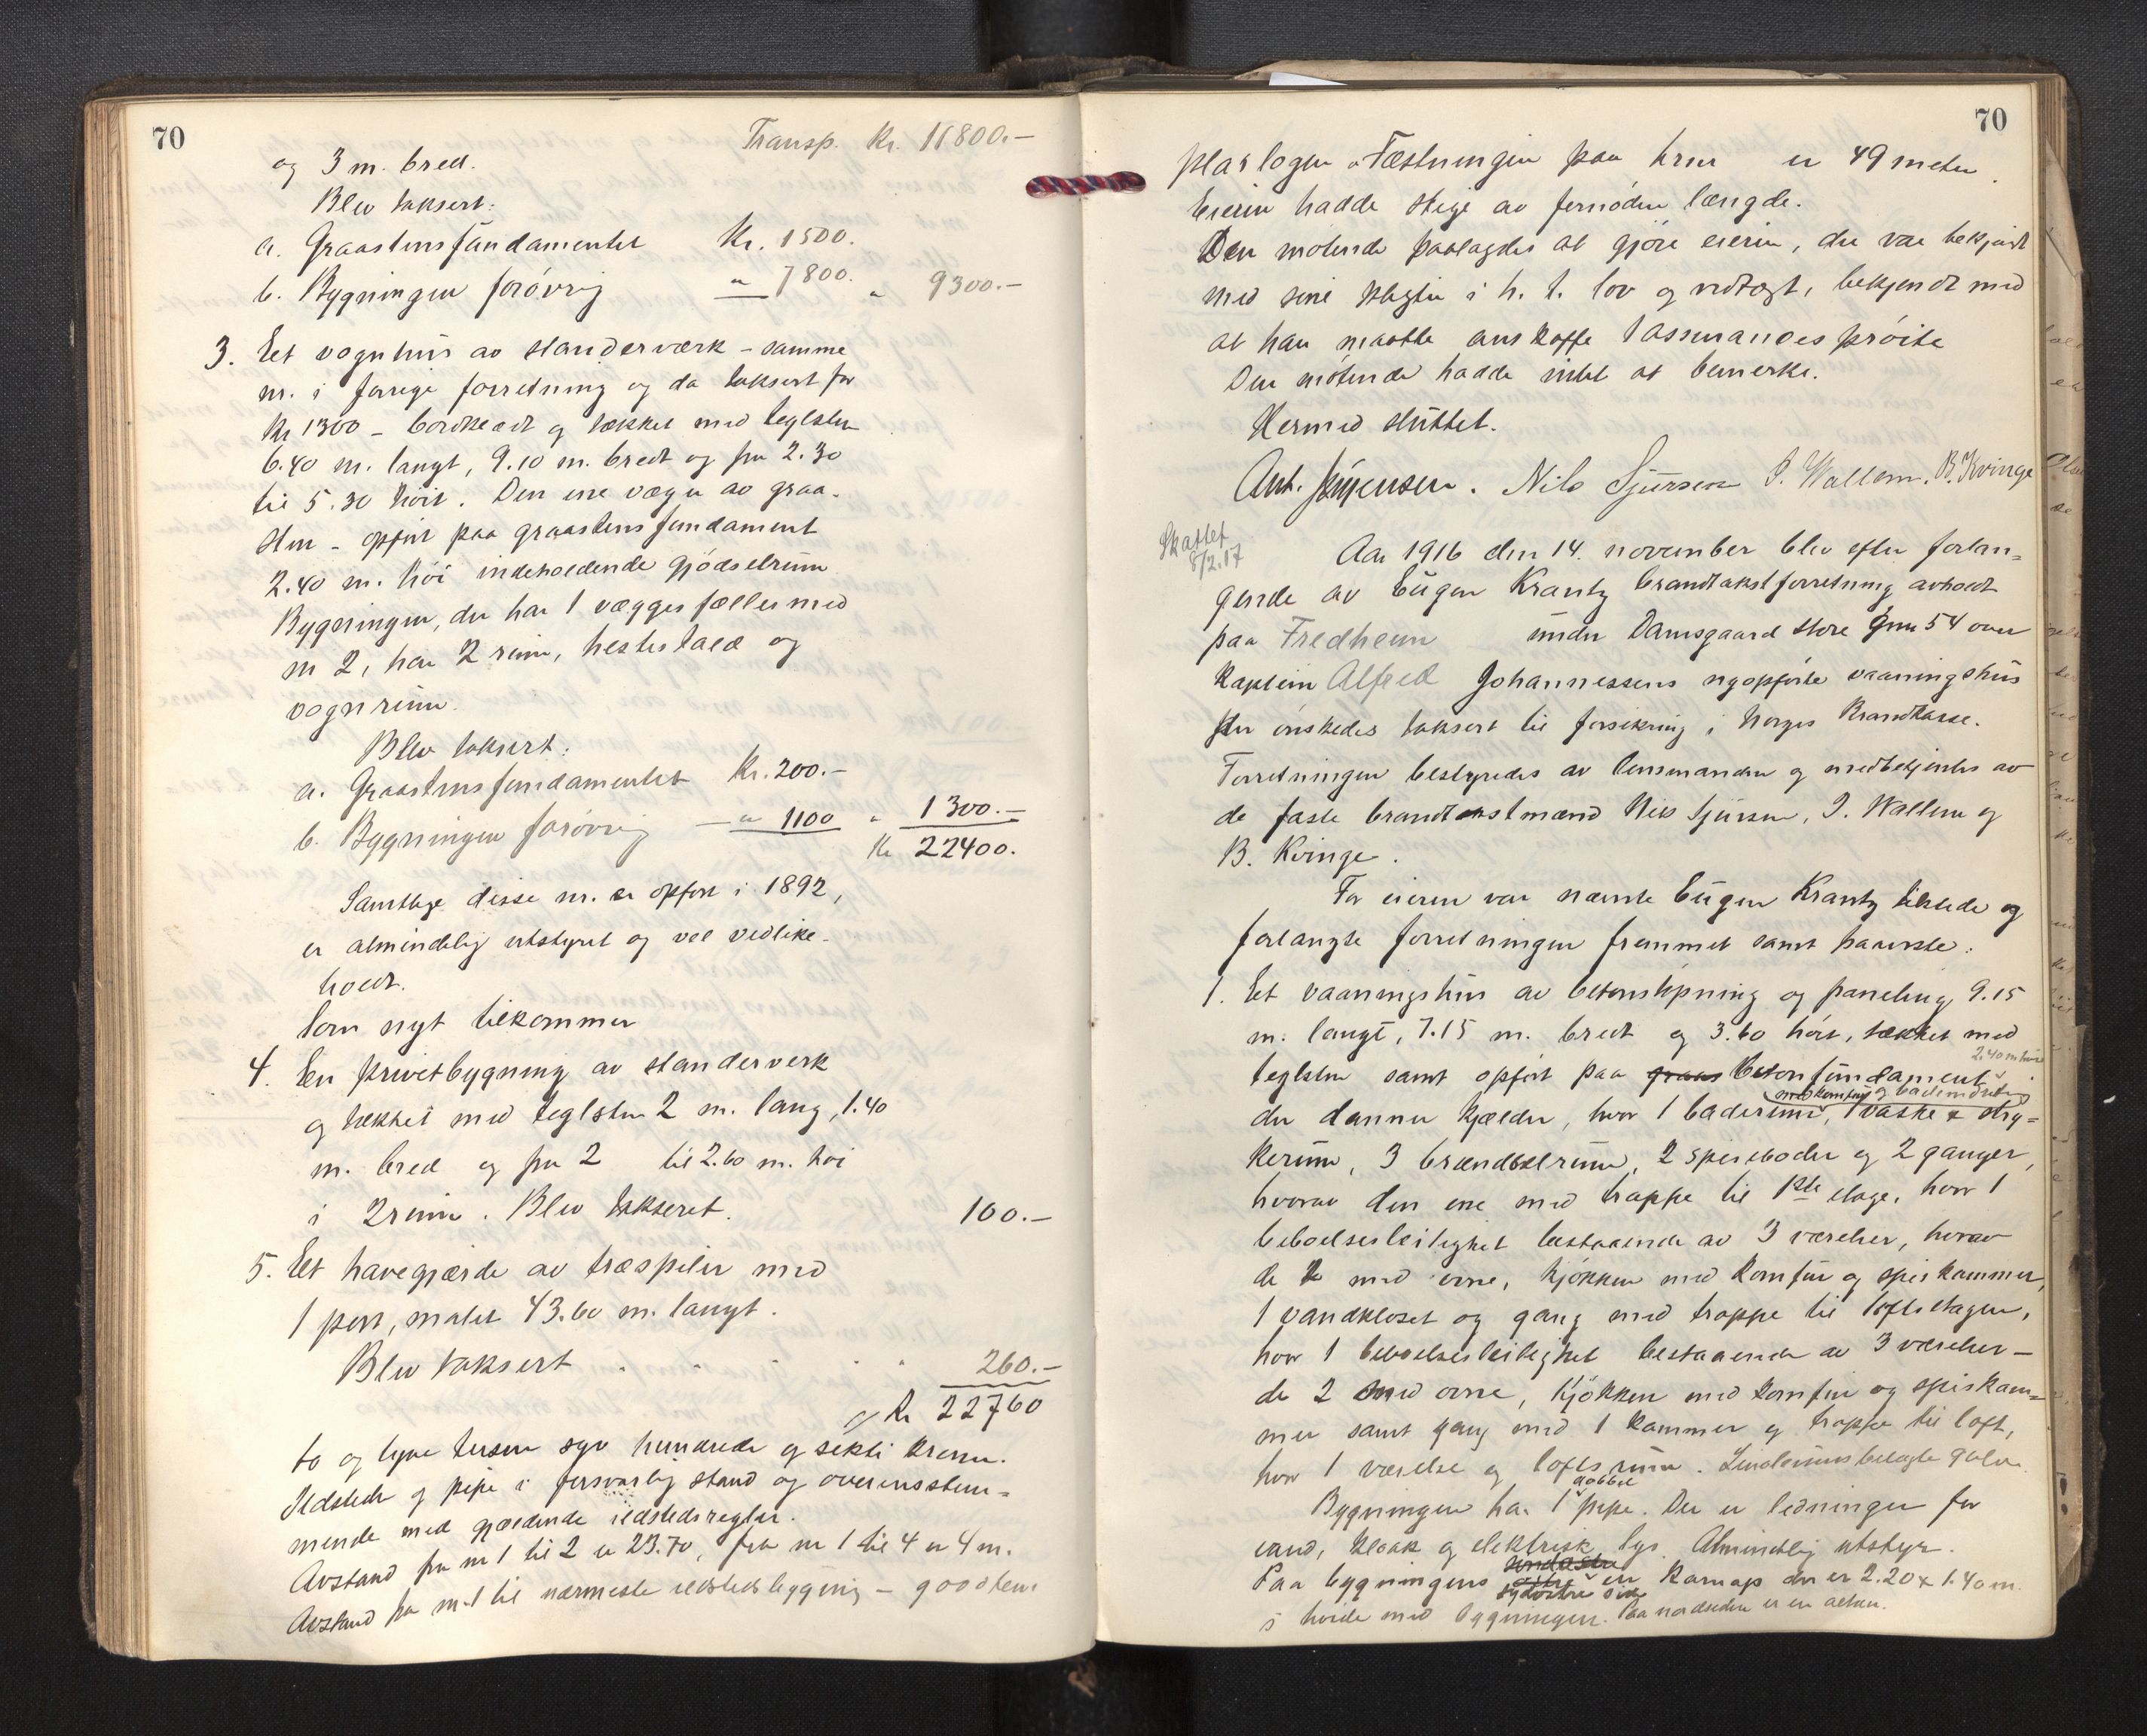 70
Transp. Kr. 11800.-
og 3 m. bred.
Blev taksert:
a. Graastensfundamentet Kr. 1500.
b. Bygningen forøvrig " 7800. " 9300.-
3. Eet vognhus av standerværk - samme
nr. i forrige forretning og da taksert for
Kr 1300 - bordklædt og tækket med teglsten
6.40 m. langt, 9.10 m. bredt og fra 2.30
til 5.30 høit. Den ene vægg av graa-
sten - opført paa graastensfundament
2.40 m. høi indeholdende gjødselrum
Bygningen, der har 1 vægges fælles med
nr 2, har 2 rum, hestestald og
vognrum.
Blev taksert:
a. Graastensfundamentet Kr. 200.-
b. Bygningen forøvrig - " 1100 " 1300.-
Kr 22400.
Samtlige disse nr. er opført i 1892,
er almindelig utstyret og vel vedlike-
holdt.
Som nyt tilkommer
4. En privetbygning av standerverk
og tækket med teglsten 2 m. lang, 1.40
m. bred og fra 2 til 2.60 m. høi
i 2 rum. Blev takseret. 100.-
5. Et havegjærde av træspiler med
1 port, malet 43.60 m. langt.
Blev taksert . . . . . 260.-
Kr 22760
to og tyve tusen syv hundrede og sekti kroner.
Ildsteder og pipe i forsvarlig stand og overensstem-
mende med gjældende ildstedsregler.
Avstand fra nr 1 til 2 er 23.70, fra nr 1 til 4 er 4 m.
Avstand fra nr. 1 til nærmeste ildstedsbygning - godtem
70
plarlogen o Fæstningen paa brur er 49 meter.
Eieren hadde stige av fornøden længde.
Den møtende paalagdes at gjøre eieren, der var bekjendt
med sine pligter i h. t. lov og vedtægt, bekjendt med
at han maatte anskaffe 1 assurancesprøite
Den møtende hadde intet at bemerke.
Hermed sluttet.
Ant. Jørgensen. Nils Sjursen I. Wallem. B. Kvinge
Skattet
8/2.17
Aar 1916 den 14. november blev efter forlan-
gende av Eugen Krantz brandtakstforretning avholdt
paa Fredheim under Damsgaard store gnr 54 over
kaptein Alfred Johannessens nyopførte vaaningshus
der ønskedes taksert til forsikring i Norges Brandkasse.
Forretningen bestyredes av lensmanden og medbetjentes av
de faste brandtakstmænd Nils Sjursen, I. Wallem og
B. Kvinge.
For eieren var nævnte Eugen Krantz tilstede og
forlangte forretningen fremmet samt paaviste:
1. Et vaaningshus av betonstøpning og paneling 9.15
m. langt, 7.15 m. bredt og 3.60 høit, tækket med
2.40 m høit
teglsten samt opført paa graas betonfundament
med komfur og badeindretning
der danner kjælder, hvor 1 baderum, 1 vaske & stry-
kerum, 3 brændselrum, 2 spiseboder og 2 ganger,
hvorav den ene med trappe til 1ste etage, hvor 1
beboelsesleilighet bestaaende av 3 værelser, hvorav
de 2 med ovne, kjøkken med komfur og spiskammer,
1 vandkloset og gang med trappe til loftsetagen,
hvor 1 beboelsesleilighet bestaaende av 3 værelser -
de 2 med ovne, kjøkken med komfur og spiskam-
mer samt gang med 1 kammer og trappe til loft,
hvor 1 værelse og loftsrum. Linoleumsbelagte gulve
dobbel
Bygningen har 1 pipe. Der er ledninger for
vand, kloak og elektrisk lys. Almindelig utstyr.
Paa bygningens sydøstre side er en karnap der er 2.20 x 1.40 m.
i høide med bygningen. Paa nordsiden er en altan.